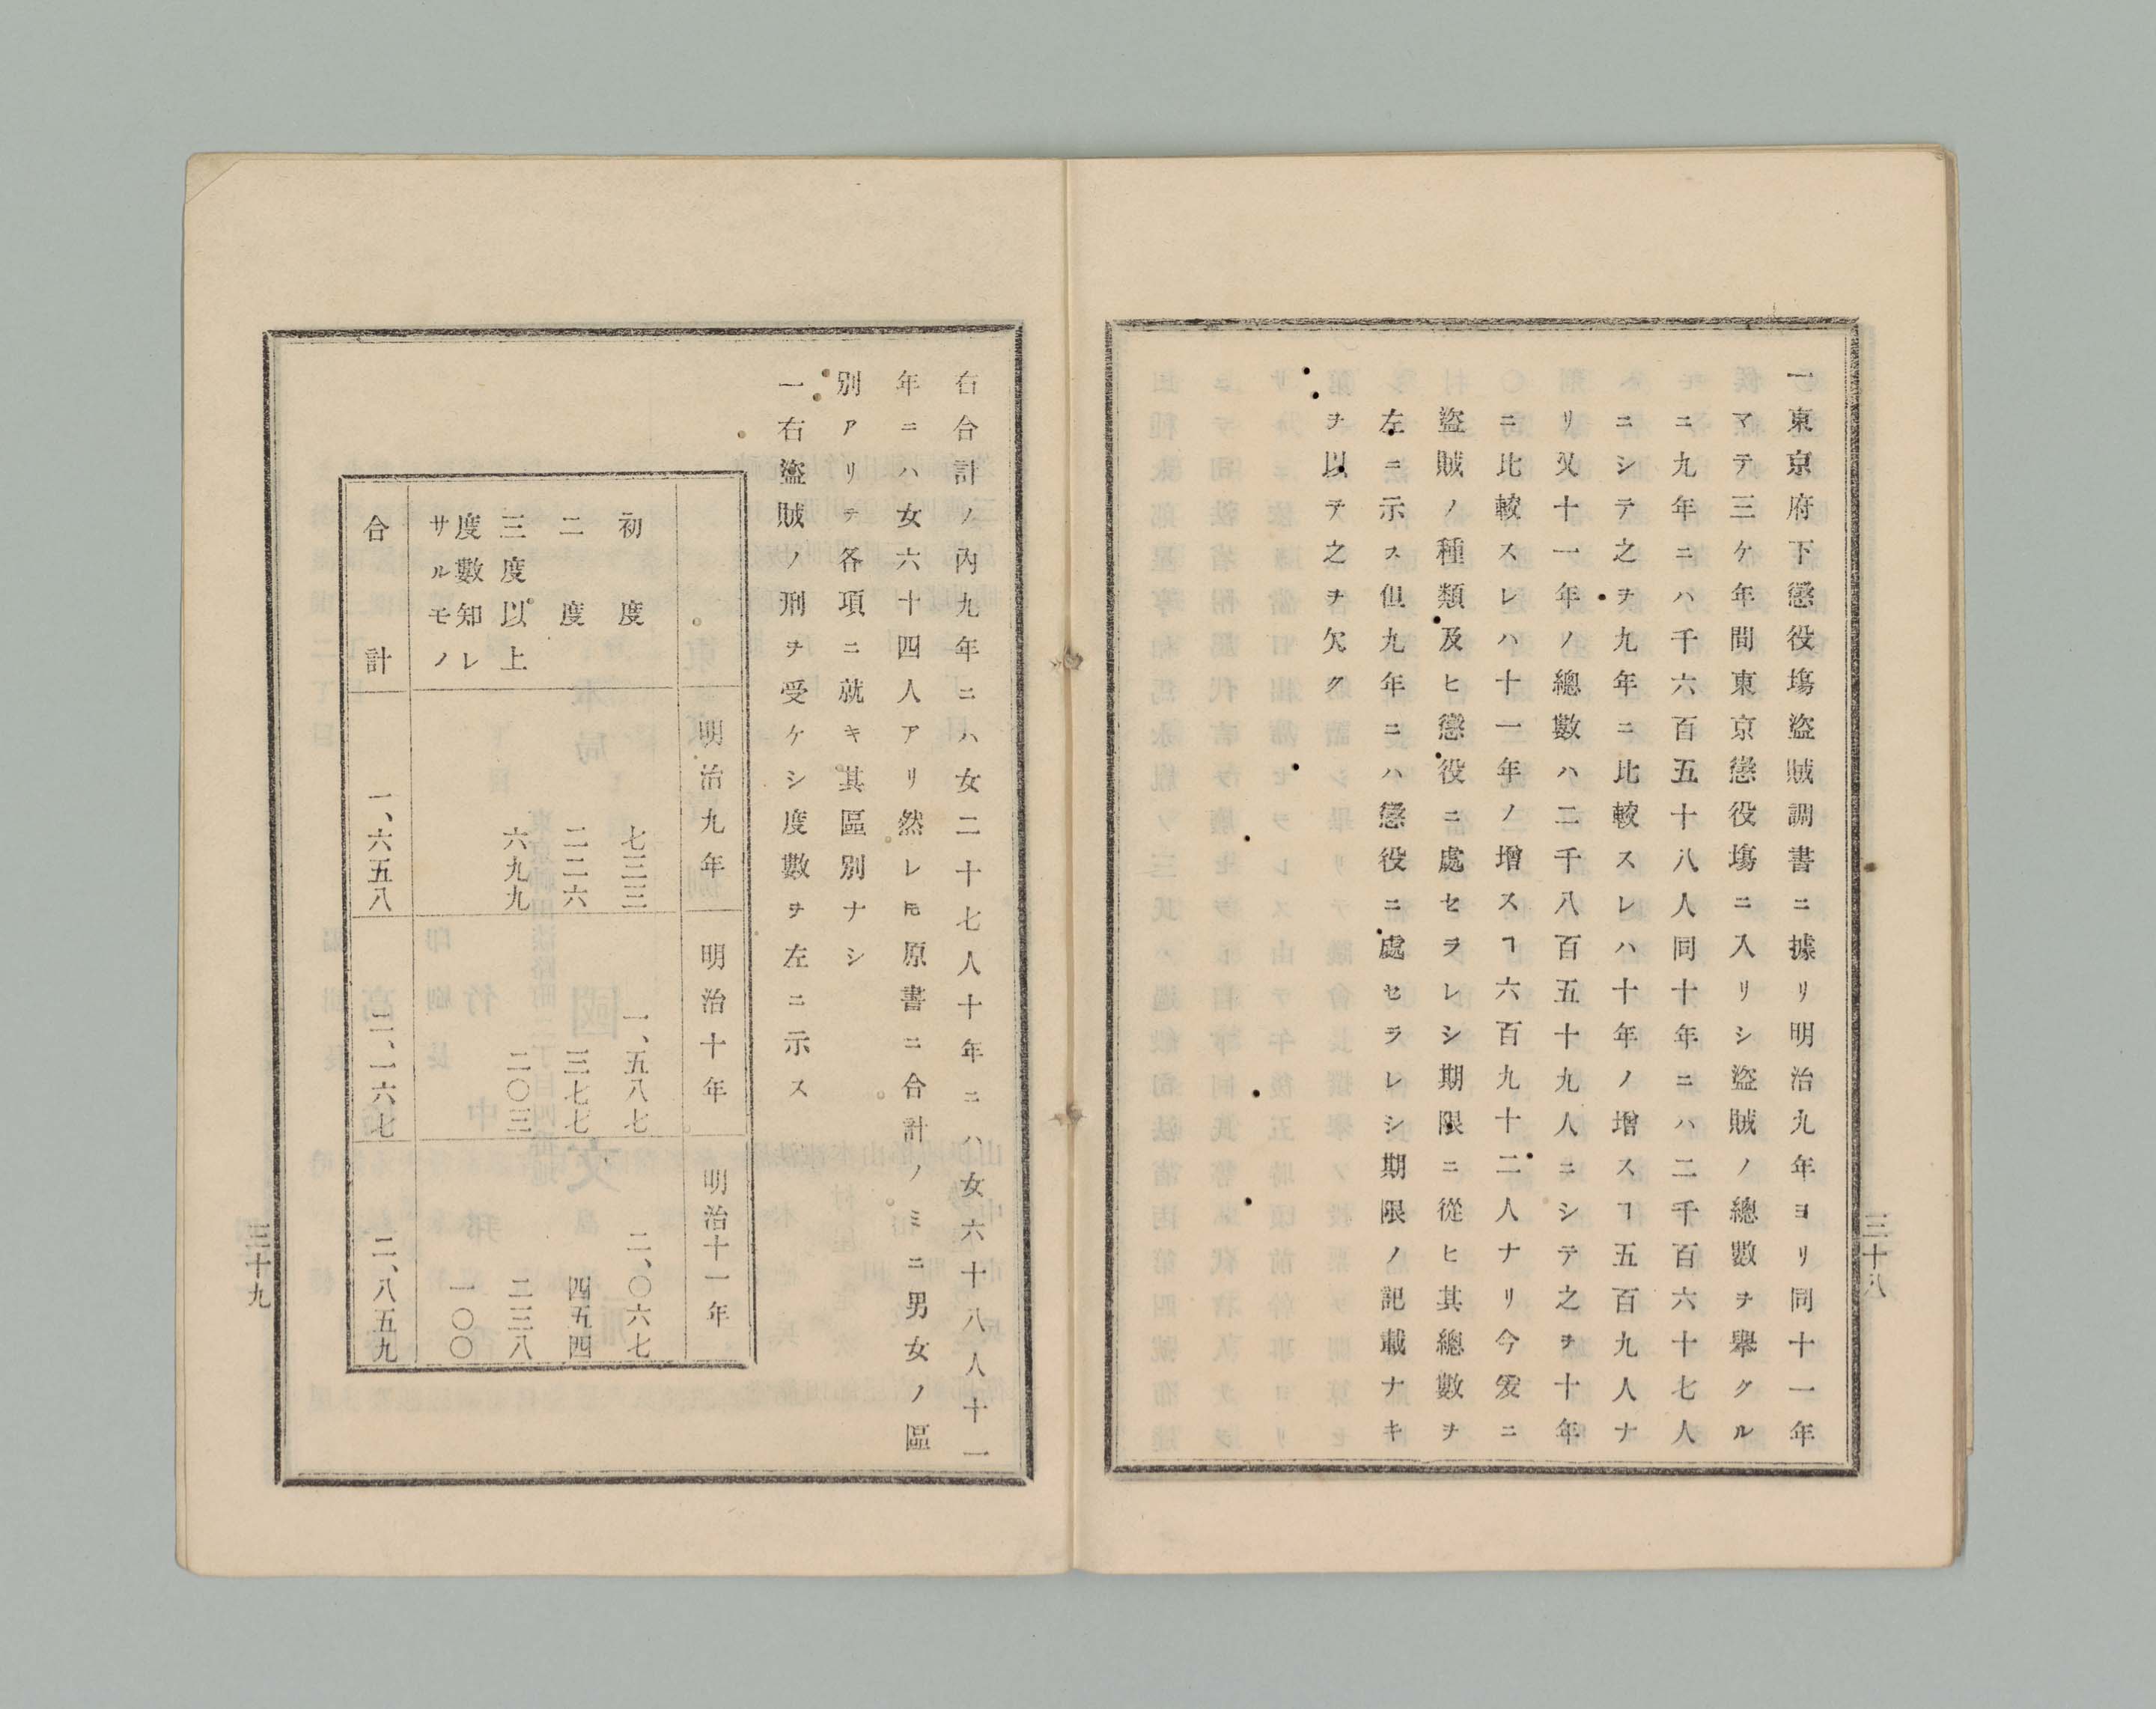 三十八
一東京府下懲役塲盜賊調書ニ據リ明治九年ヨリ同十一年
マテ三ケ年間東京懲役塲ニ入リシ盜賊ノ總數ヲ擧クル
ニ九年ニハ千六百五十八人同十年ニハ二千百六十七人
ニシテ之ヲ九年ニ比較スレハ十年ノ增スヿ五百九人ナ
リ又十一年ノ總數ハ二千八百五十九人ニシテ之ヲ十年
ニ比較スレハ十一年ノ增スヿ六百九十二人ナリ今爰ニ
盜賊ノ種類及ヒ懲役ニ處セラレシ期限ニ從ヒ其總數ヲ
左ニ示ス但九年ニハ懲役ニ處セラレシ期限ノ記載ナキ
ヲ以テ之ヲ欠ク
右合計ノ內九年ニハ女二十七人十年ニハ女六十八人十一
年ニハ女六十四人アリ然レ𪜈原書ニ合計ノミニ男女ノ區
別アリテ各項ニ就キ其區別ナシ
一右盜賊ノ刑ヲ受ケシ度數ヲ左ニ示ス
明治九年 明治十年 明治十一年
初度 七三三 一、五八七 二、〇六七
二度 二二六 三七七 四五四
三度以上 六九九 二〇三 二三八
度數知レ
サルモノ 一〇〇
合計 一、六五八 二、一六七 二、八五九
三十九